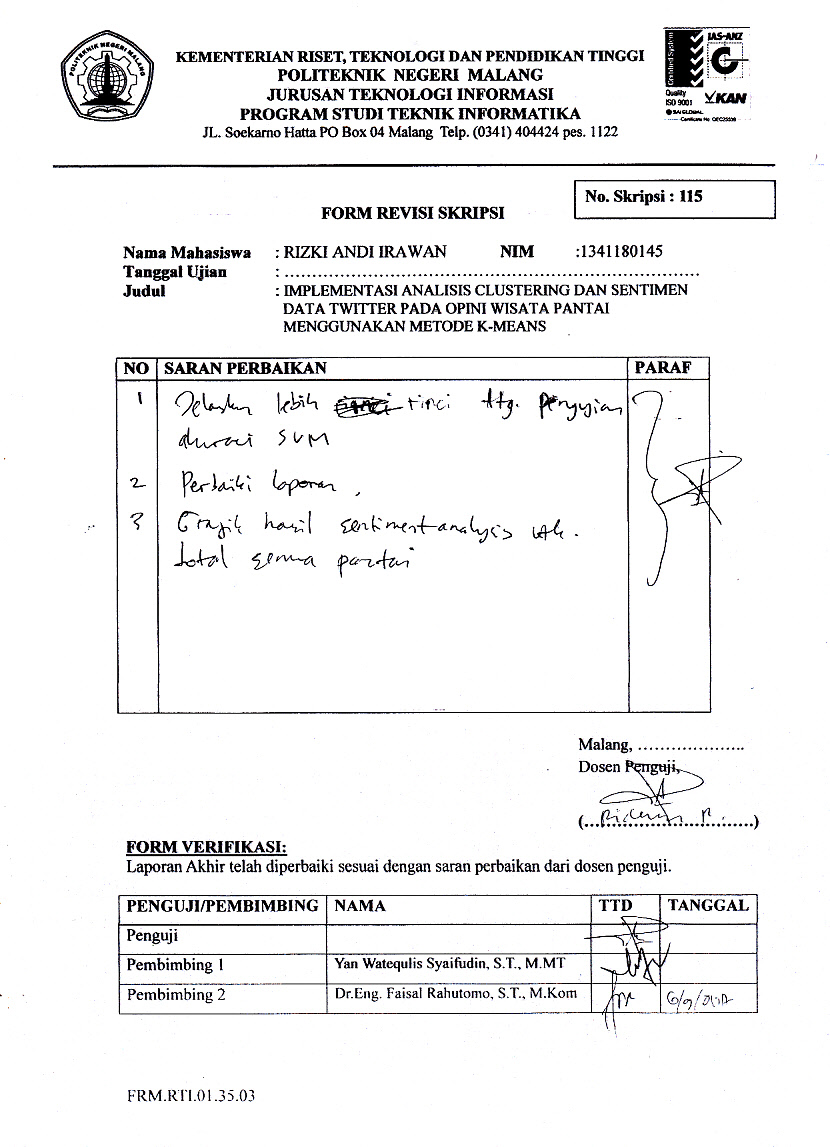 POLITEKNIK NEGERI MALANG
KEMENTERIAN RISET, TEKNOLOGI DAN PENDIDIKAN TINGGI
POLITEKNIK NEGERI MALANG
JURUSAN TEKNOLOGI INFORMASI
PROGRAM STUDI TEKNIK INFORMATIKA
JL. Soekarno Hatta PO Box 04 Malang Telp. (0341) 404424 pes. 1122
Certified System
JAS-ANZ
Quality
ISO 9001
KAN
SAI GLOBAL
No. Skripsi : 115
FORM REVISI SKRIPSI
Nama Mahasiswa : RIZKI ANDI IRAWAN NIM :1341180145
Tanggal Ujian : ..........................................................................
Judul : IMPLEMENTASI ANALISIS CLUSTERING DAN SENTIMEN
DATA TWITTER PADA OPINI WISATA PANTAI
MENGGUNAKAN METODE K-MEANS
NO SARAN PERBAIKAN PARAF
1 Jelaskan lebih rinci ttg. Pengujian
akurasi SVM
2 Perbaiki laporan,
3 Grafik hasil sentiment analysis utk.
total semua pantai
Malang, ....................
Dosen Penguji,
FORM VERIFIKASI:
Laporan Akhir telah diperbaiki sesuai dengan saran perbaikan dari dosen penguji.
PENGUJI/PEMBIMBING NAMA TTD TANGGAL
Penguji
Pembimbing 1 Yan Watequlis Syaifudin, S.T., M.MT
Pembimbing 2 Dr.Eng. Faisal Rahutomo, S.T., M.Kom
FRM.RTI.01.35.03